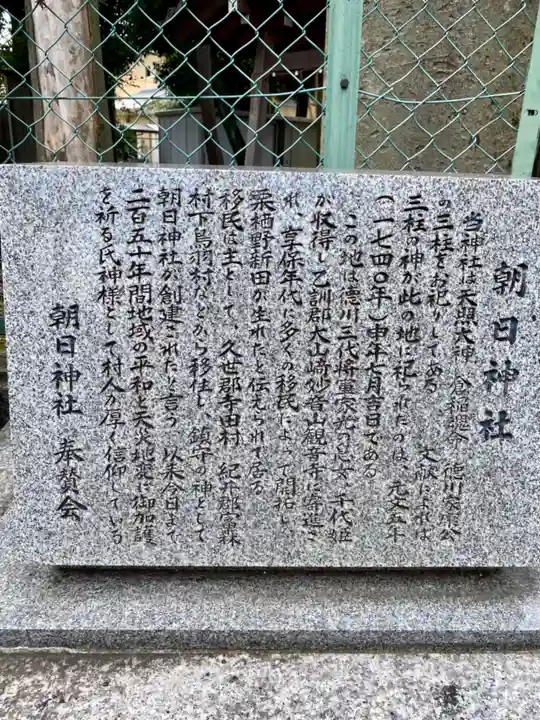 朝日神社
当神社は天照大神 倉稲魂命 徳川家康公
の三柱をお祀りしてある 文献によれば
三柱の神が此の地に祀られたのは、元文五年
(一七四〇年)申年七月吉日である
この地は徳川三代将軍家光の息女、千代姫
が収得し乙訓郡大山崎妙音山観音寺に寄進さ
れ、享保年代に多くの移民によって開拓し、
栗栖野新田が生れたと伝えられて居る
移民は主として、久世郡寺田村、紀井郡富森
村下鳥羽村などから移住し、鎮守の神として
朝日神社が創建されたと言う 以来今日まで
二百五十年間地域の平和と天災地変に御加護
を祈る氏神様として村人が厚く信仰している
朝日神社 奉賛会